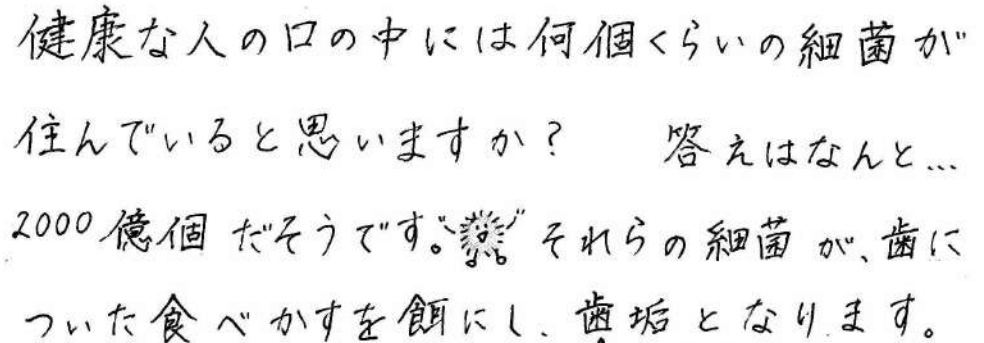 健康な人の口の中には何個くらいの細菌が
住んでいると思いますか？　答えはなんと…
2000億個だそうです。それらの細菌が、歯に
ついた食べかすを餌にし、歯垢となります。